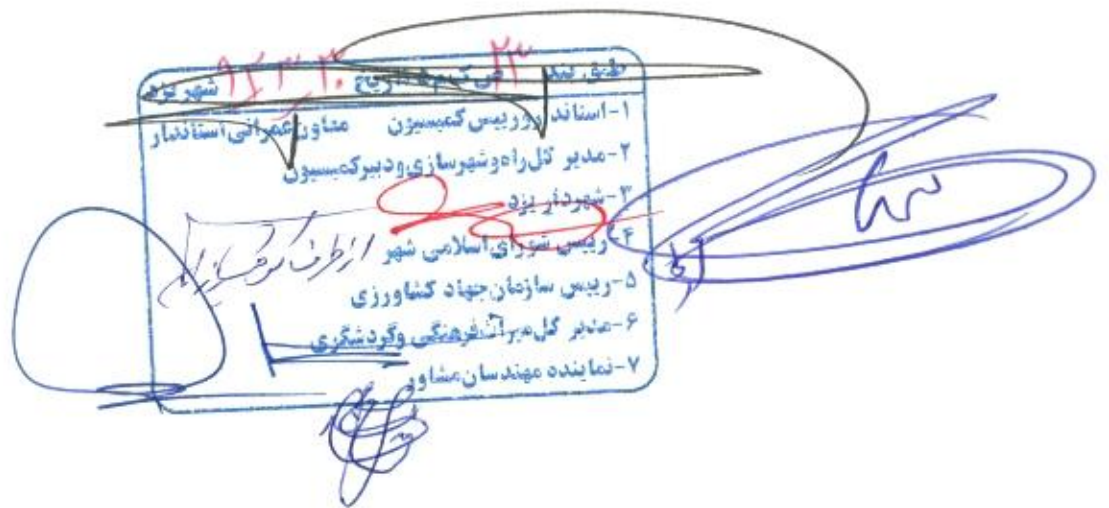 طبق بند ۲۳ شهر یزد
۱-استاندار ورییس کمیسیون معاون عمرانی استاندار
۲-مدیر کل راه وشهرسازی ودبیرکمیسیون
۳-شهردار یزد
۴-رییس شورای اسلامی شهر از طرف
۵-رییس سازمان جهاد کشاورزی
۶-مدیر کل میراث فرهنگی وگردشگری
۷-نماینده مهندسان مشاور